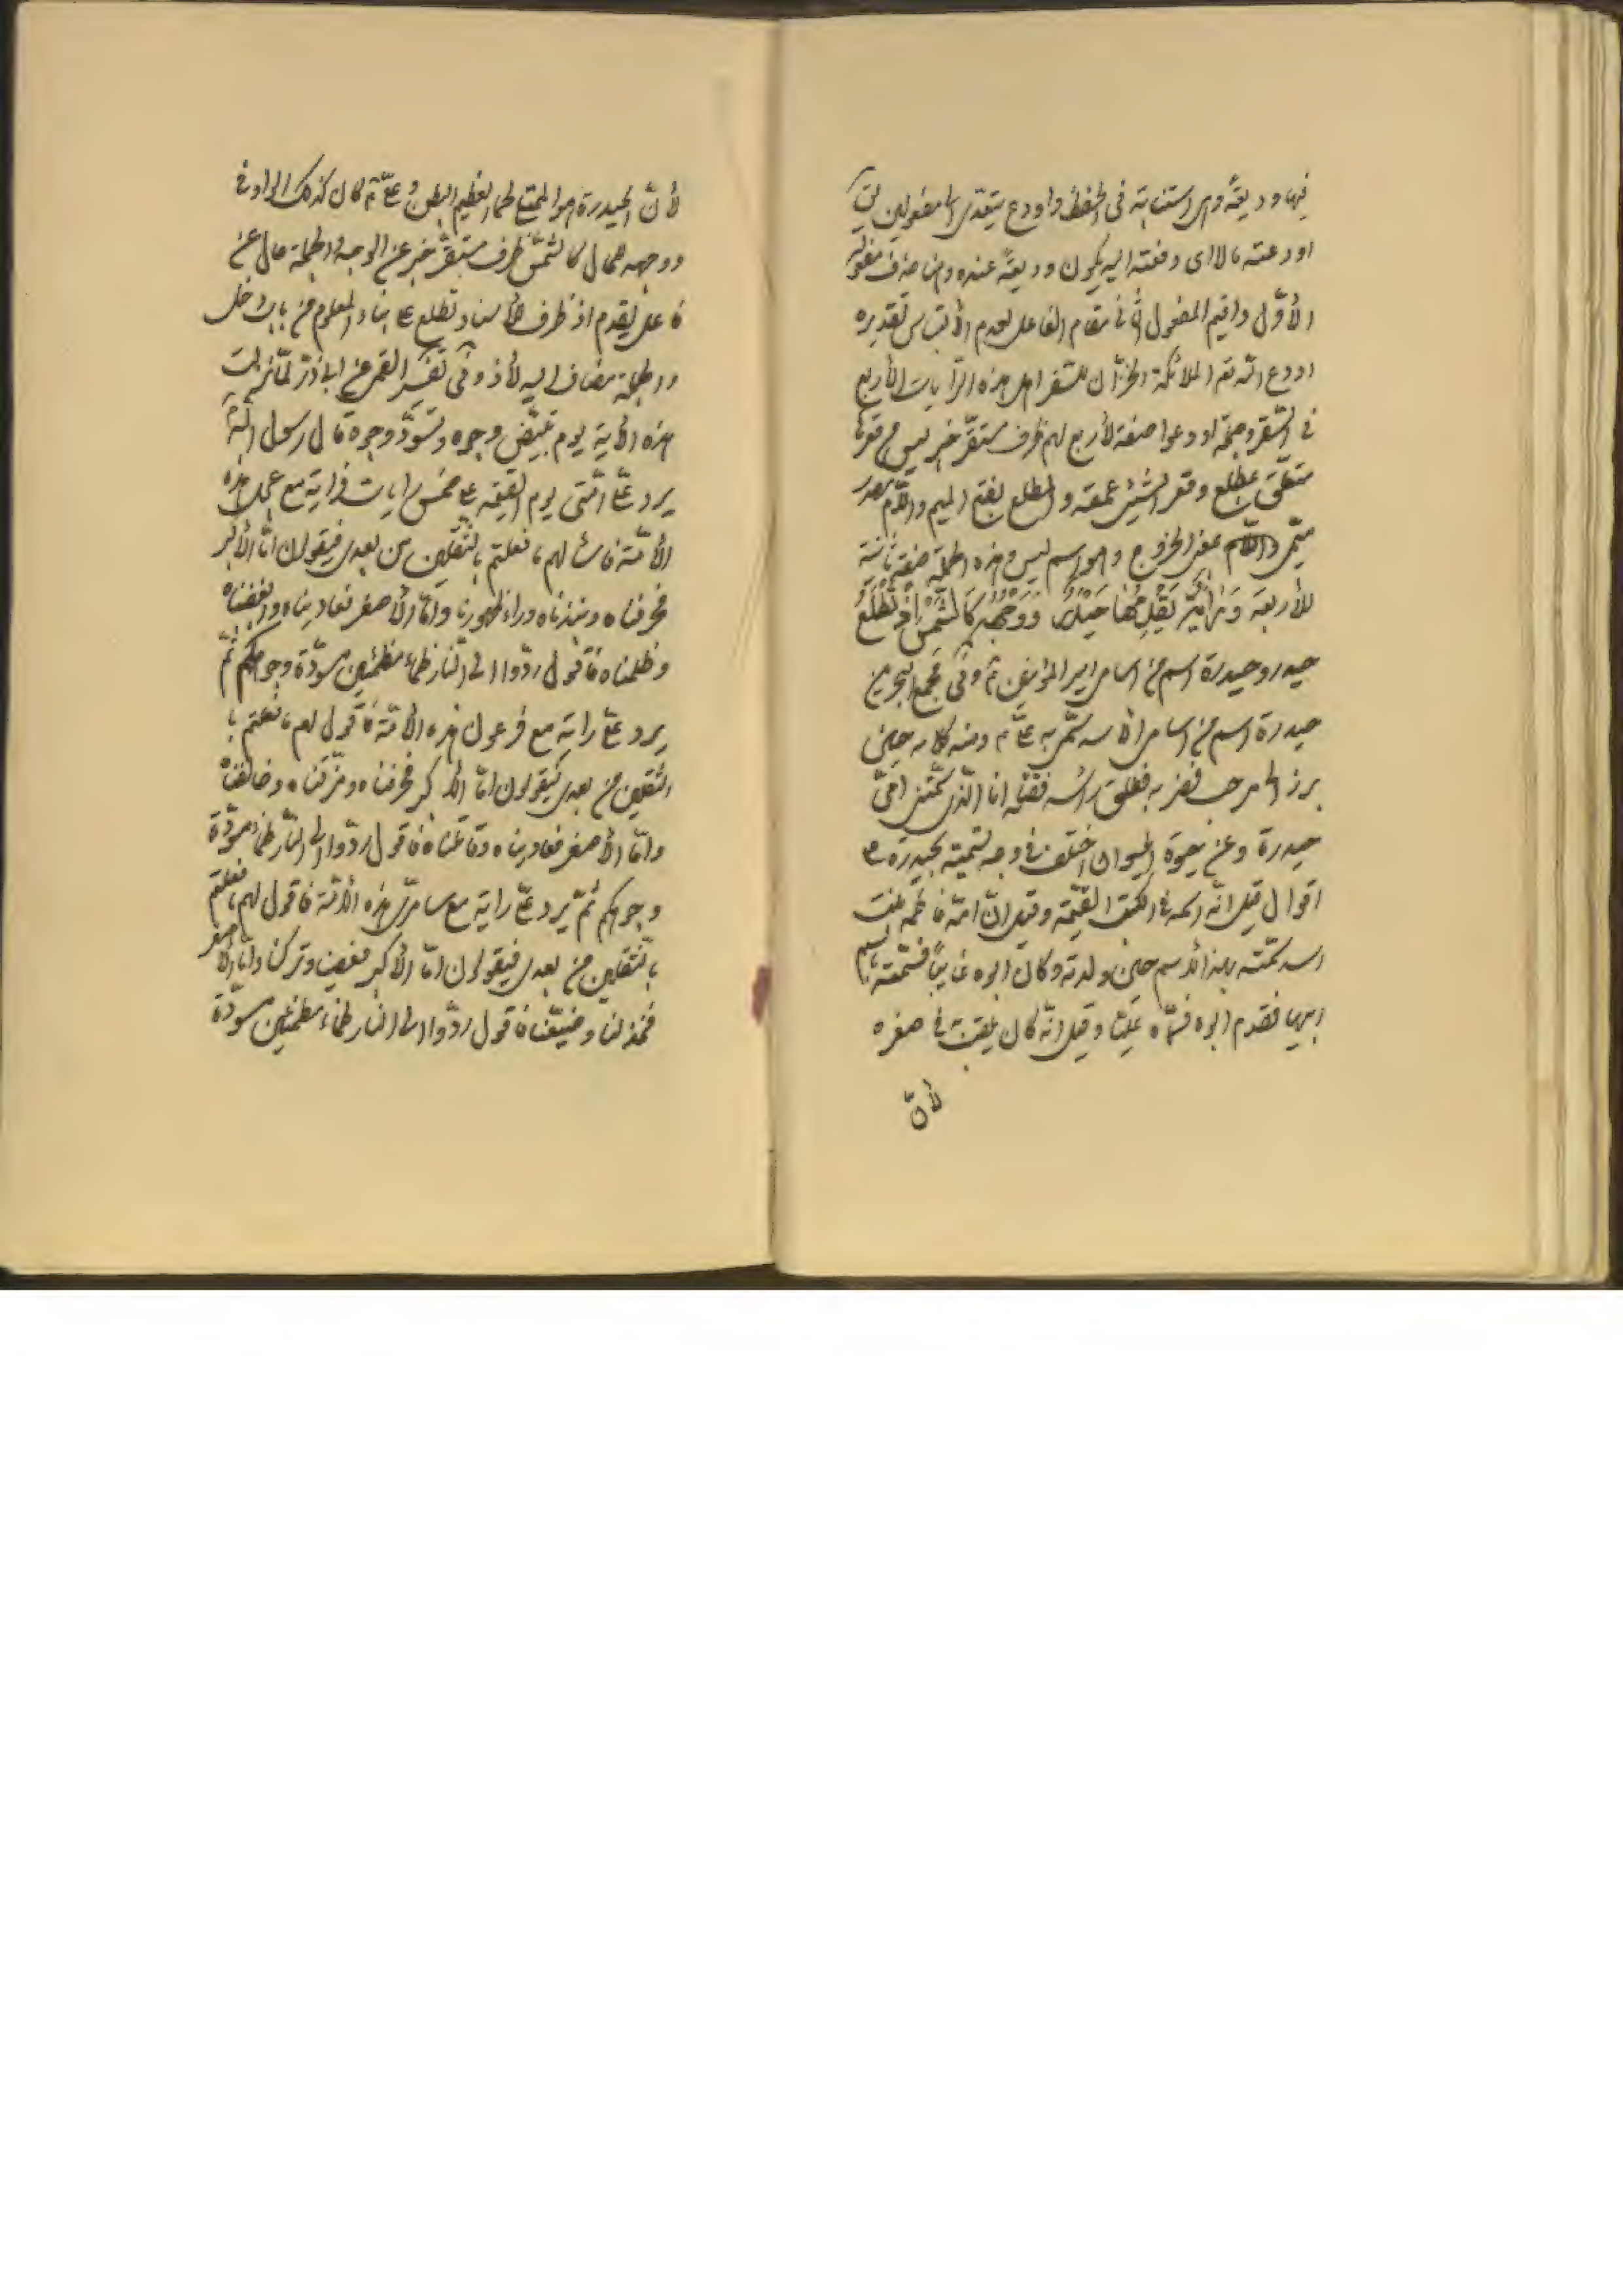 فيها وديعة وهي استنابة في الحفظ واودع يتعدى الى مفعولين يق
اودعته مالا اى دفعته اليه يكون وديعة عنده وهنا حذف مفعوله
الأوّل واقيم المفعول الثّانى مقام الفاعل لعدم الألتباس تقديره
اودع الله تع الملائكة الخزّان للسّقر اهل هذه الرّايات الأربع
فى السّقر وجملة اودعوا صفة لأربع لهم ظرف مستقرّ خبر ليس من قعرها
متعلّق بمطلع وقعر الشّيئ عمقه والمطلع بفتح الميم واللّام مصدر
ميمّى بمعنى الخروج وهو اسم ليس وهذه الجملة صفة ثانية
للأربعة وَرٰايَةٌ يَقْدِمُهٰا حَيْدَرٌ وَوَجْهُهُ كَالشَّمْسِ اِذْ تَطْلُعُ
حيدر وحيدرة اسم من اسامى امير المؤمنين ع وفى مجمع البحرين
حيدرة اسم من اسامى الأسد سمّى به علىّ ع ومنه كلامه حين
برز الى مرحب فضربه ففلق رأسه فقتله انا الّذى سمّتنى امّى
حيدرة وعن حيوة الحيوان اختلف فى وجه تسميته بحيدرة على
اقوال قيل انّه اسمه فى الكتب القديمة وقيل انّ امّه فاطمة بنت
اسد سمّته بهذا الأسم حين ولدته وكان ابوه غايبًا فسمّته باسم
ابيها فقدم ابوه فسمّاه عليّا وقيل انّه كان يلقّب فى صغره
لأنّ
لأنّ الحيدرة هو الممتلى لحما العظيم البطن وعلىّ ع كان كذلك الواو فى
ووجهه للحال كالشّمس ظرف مستقرّ خبر عن الوجه والجملة حال عن
فاعل يقدم اذ ظرف لأسناد تطلع على بناء المعلوم من باب دخل
والجملة مضاف اليه لأذ وفى تفسير القمى عن ابى ذرّ لمّا نزلت
هذه الآية يوم تبيضّ وجوه وتسودّ وجوه قال رسول الله
يرد علىّ امّتى يوم القيمة على خمس رايات فراية مع عجل هذه
الأمّة فاسئالهم ما فعلتم بالثّقلين من بعدى فيقولون امّا الأكبر
فحرفناه ونبذناه وراء ظهورنا وامّا الأصغر فعاديناه وابغضناه
وظلمناه فاقول ردّوا الى النّار ظماء مظمئين مسودّة وجوهكم ثمّ
يرد علىّ راية مع فرعون هذه الأمّة فاقول لهم ما فعلتم با
لثّقلين من بعدى فيقولون امّا الأكبر فحرفناه ومزّقناه وخالفناه
وامّا الأصغر فعاديناه وقاتلناه فاقول ردّوا الى النّار ظماء مسودّة
وجوهكم ثمّ يرد علىّ راية مع سامرىّ هذه الأمّة فاقول لهم ما فعلتم
بالثّقلين من بعدى فيقولون امّا الأكبر فعصينا وتركنا وامّا الأصغر
فخذلنا وضيّعنا فاقول ردّوا الى النار ظماء مظمئين مسودّة